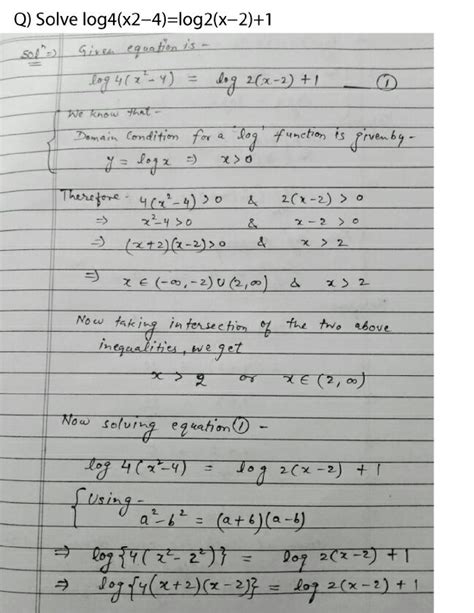 Q) Solve log4(x2−4)=log2(x−2)+1
Solⁿ ⇒) Given equation is -
log 4(x²-4) = log 2(x-2) + 1 — ①
We know that -
Domain Condition for a 'log' function is given by -
y = log x ⇒ x>0
Therefore - 4(x²-4)>0 & 2(x-2) > 0
⇒ x²-4>0 & x-2 > 0
⇒) (x+2)(x-2)>0 & x > 2
⇒) x ∈ (-∞,-2) ∪ (2,∞) & x > 2
Now taking intersection of the two above
inequalities, we get
x > 2 or x ∈ (2, ∞)
Now solving equation ① -
log 4(x²-4) = log 2(x-2) + 1
{ Using -
a²-b² = (a+b)(a-b)
⇒ log{4(x²-2²)} = log 2(x-2) + 1
⇒ log{4(x+2)(x-2)} = log 2(x-2) + 1